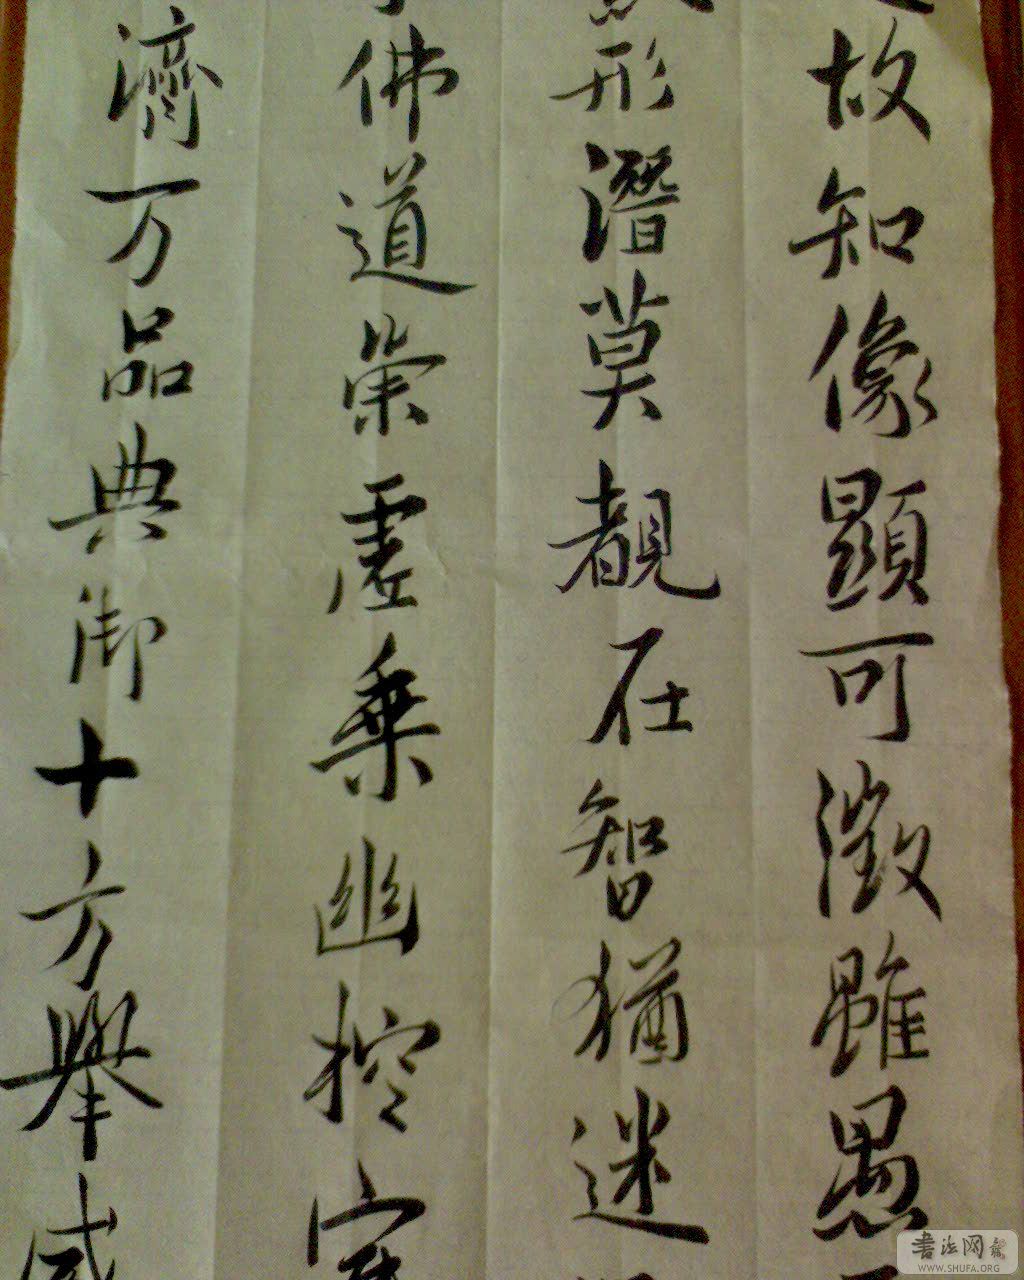 故知像顯可徵雖愚
形潛莫覩在智猶迷
佛道崇虛乘幽控寂
濟万品典御十方舉威
書法网
WWW.SHUFA.ORG